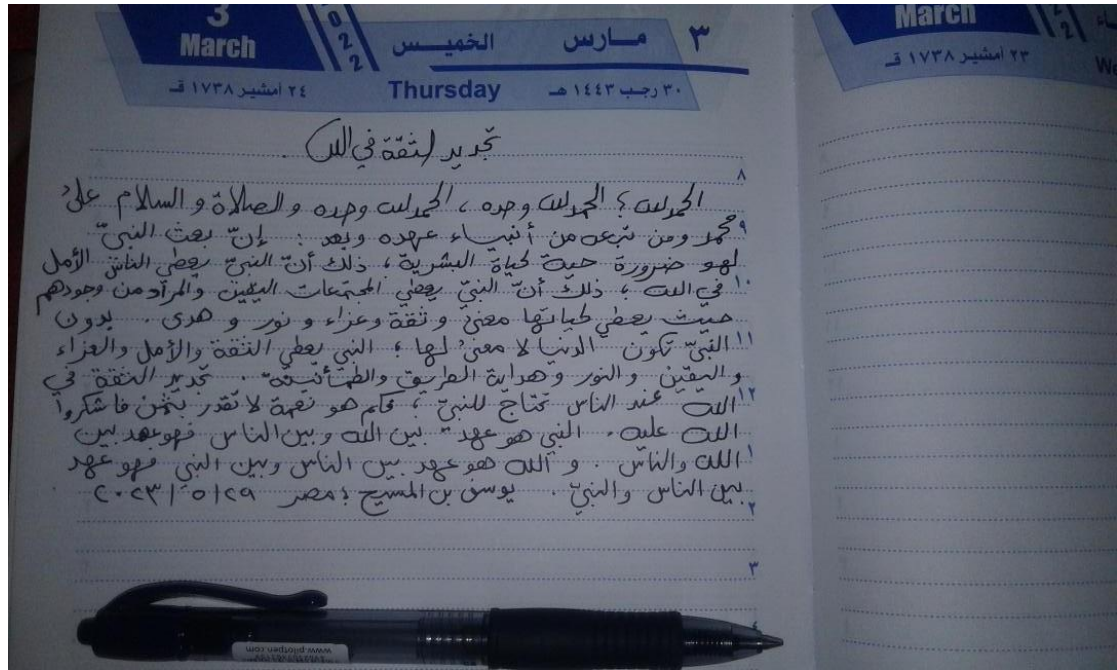 3
March
2022
الخميس
مارس
٣
Thursday
٢٤ أمشير ١٧٣٨ قـ
٣٠ رجب ١٤٤٣ هـ
March
٢٣ أمشير ١٧٣٨ قـ
We
تجديد الثقة في الله .
٨
الحمد لله ؛ الحمد لله وحده ، الحمد لله وحده و الصلاة و السلام على
٩ محمد ومن تبعه من أنبياء عهده وبعد : إنّ بعث النبيّ
لهو ضرورة حية لحياة البشرية ، ذلك أنّ النبيّ يعطي الناس الأمل
١٠ في الله ، ذلك أنّ النبيّ يعطي المجتمعات اليقين والمراد من وجودهم
حيث يعطي لحياتها معنىً و ثقة وعزاء و نور و هدى . بدون
١١ النبيّ تكون الدنيا لا معنىً لها ؛ النبي يعطي الثقة والأمل والعزاء
و اليقين والنور و هداية الطريق والطمأنينة . تجديد الثقة في
١٢ الله عند الناس تحتاج للنبيّ ، فكم هو نعمة لا تقدر بثمن فاشكروا
الله عليه . النبي هو عهد بين الله وبين الناس فهو عهد بين
١ الله والناس . و الله هو عهد بين الناس وبين النبي فهو عهد
بين الناس والنبيّ . يوسف بن المسيح ؛ مصر ٢٠٢٣/٥/٢٩
٢
٣
www.pilotpen.com